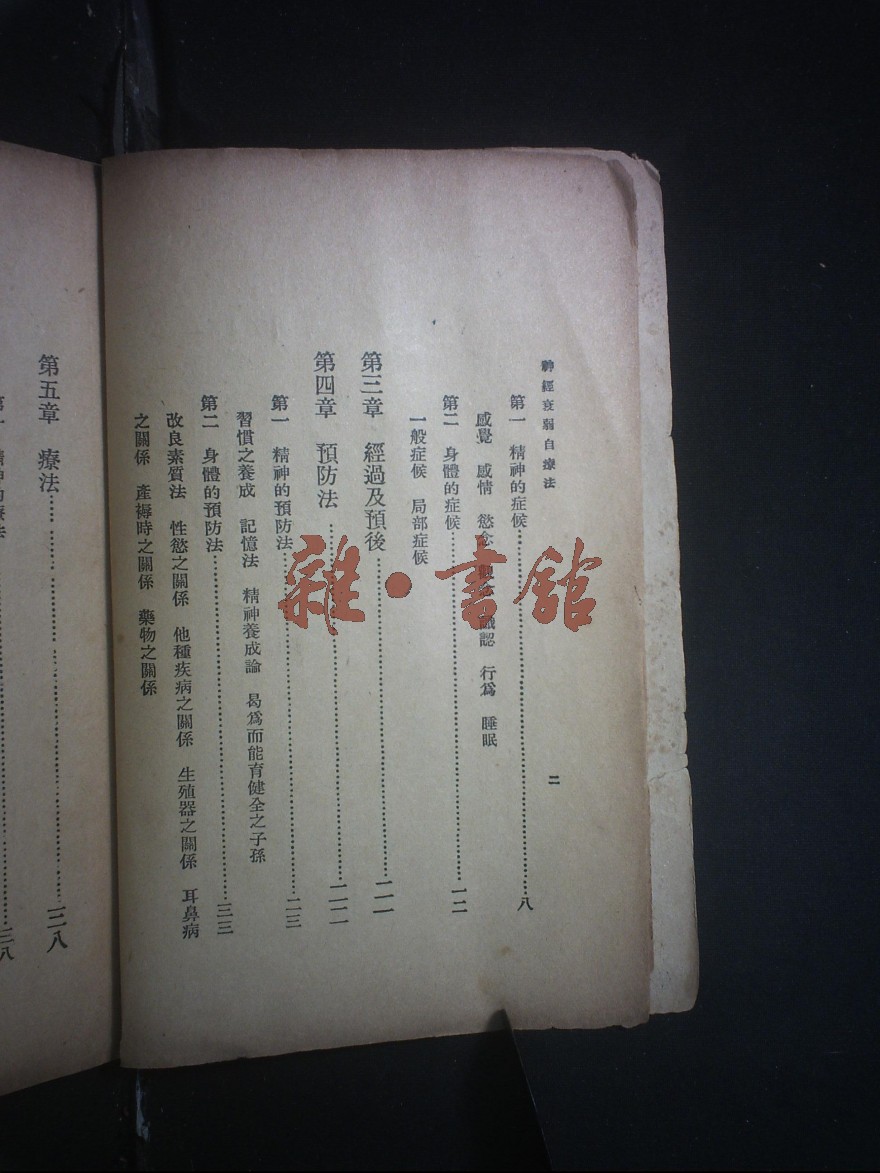 神經衰弱自療法 二
第一 精神的症候……八
感覺 感情 慾念 觀念 識認 行爲 睡眠
第二 身體的症候……一二
一般症候 局部症候
第三章 經過及預後……二一
第四章 預防法……二二
第一 精神的預防法……二三
習慣之養成 記憶法 精神養成論 曷爲而能育健全之子孫
第二 身體的預防法……三三
改良素質法 性慾之關係 他種疾病之關係 生殖器之關係 耳鼻病
之關係 產褥時之關係 藥物之關係
第五章 療法……三八
第一 精神的療法……三八
雜·書舘